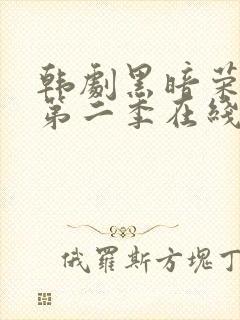 韩劇黑暗荣
第二季在綫
俄羅斯方塊丁